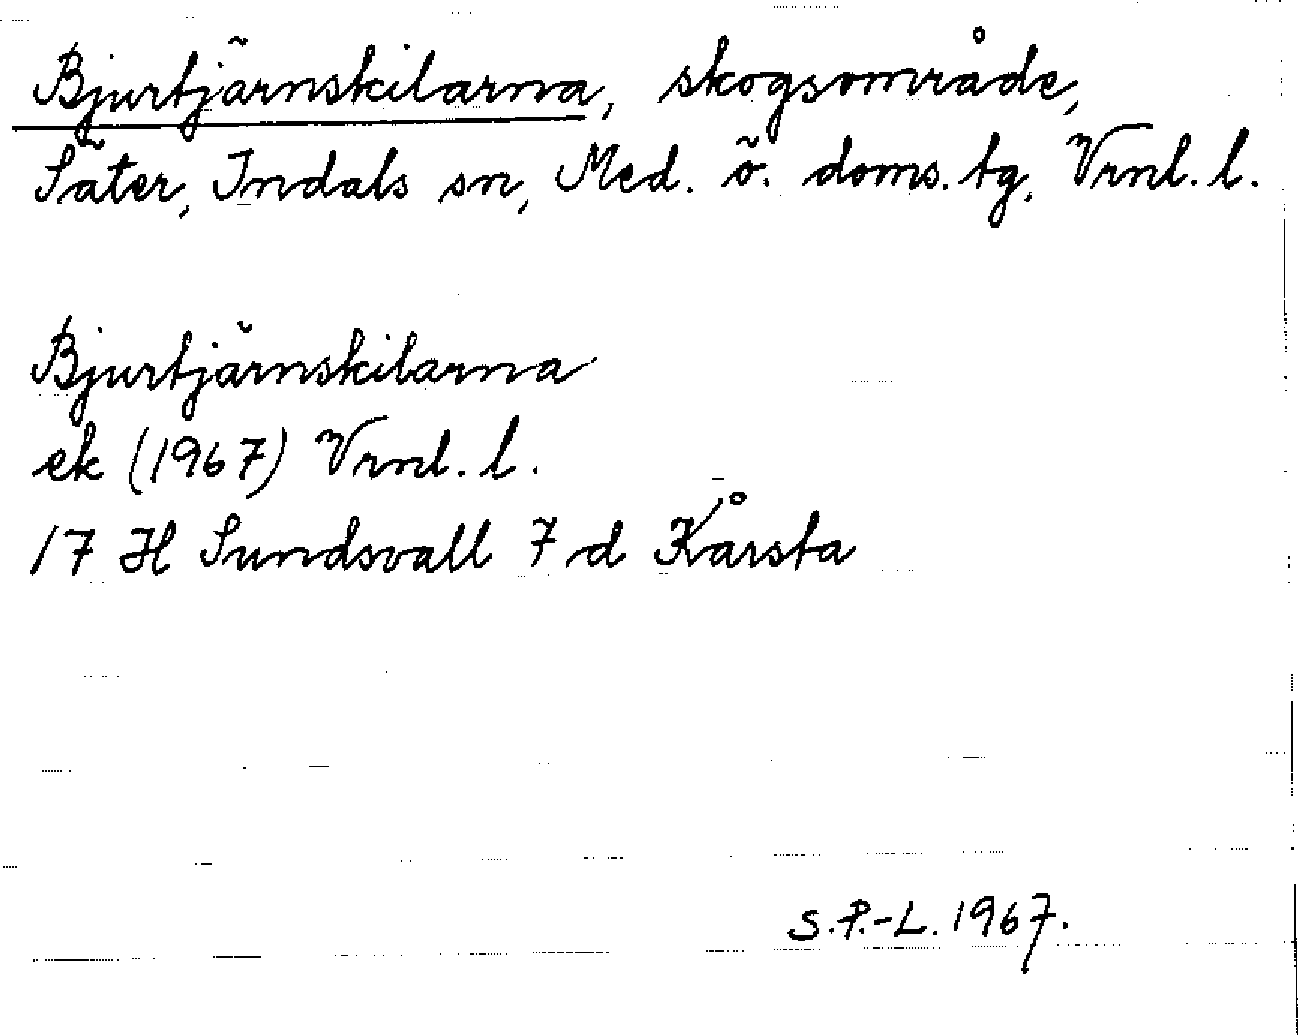 Bjurtjärnskilarna, skogsområde,
Säter, Indals sn, Med. ö. doms. tg, Vrnl. l.
Bjurtjärnskilarna
ek (1967) Vrnl. l.
17 H Sundsvall 7 d Kårsta
S. P.-L. 1967.